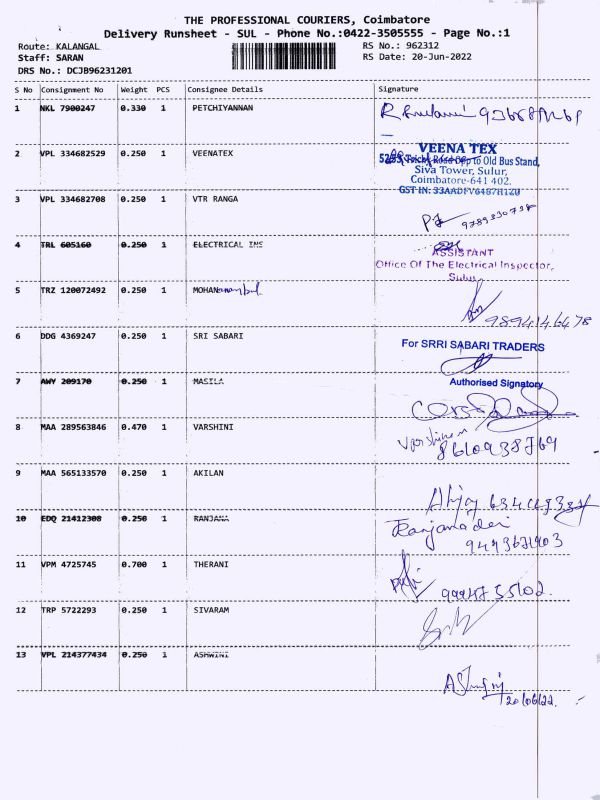 THE PROFESSIONAL COURIERS, Coimbatore
Delivery Runsheet - SUL - Phone No.:0422-3505555 - Page No.:1
Route: KALANGAL RS No.: 962312
Staff: SARAN RS Date: 20-Jun-2022
DRS No.: DCJB96231201
S No Consignment No Weight PCS Consignee Details Signature
1 NKL 7900247 0.330 1 PETCHIYANNAN
2 VPL 334682529 0.250 1 VEENATEX
VEENA TEX
Old Bus Stand,
Siva Tower, Sulur,
Coimbatore-641 402.
3 VPL 334682708 0.250 1 VTR RANGA
9789330738
4 TRL 605160 0.250 1 ELECTRICAL INS
ASSISTANT
Office Of The Electrical Inspector,
Sulur
5 TRZ 120072492 0.250 1 MOHAN
9894146478
6 DDG 4369247 0.250 1 SRI SABARI
For SRRI SABARI TRADERS
Authorised Signatory
7 AWY 209170 0.250 1 MASILA
8 MAA 289563846 0.470 1 VARSHINI
8610938769
9 MAA 565133570 0.250 1 AKILAN
10 EDQ 21412308 0.250 1 RANJANA
Ranjanadevi
11 VPM 4725745 0.700 1 THERANI
12 TRP 5722293 0.250 1 SIVARAM
13 VPL 214377434 0.250 1 ASHWINI
20/06/22.